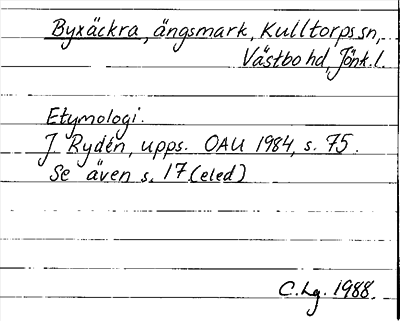 Byxäckra, ängsmark, Kulltorps sn,
Västbo hd, Jönk. l.
Etymologi.
J. Rydén, upps. OAU 1984, s. 75.
Se även s. 17 (eled)
C. Lg. 1988.